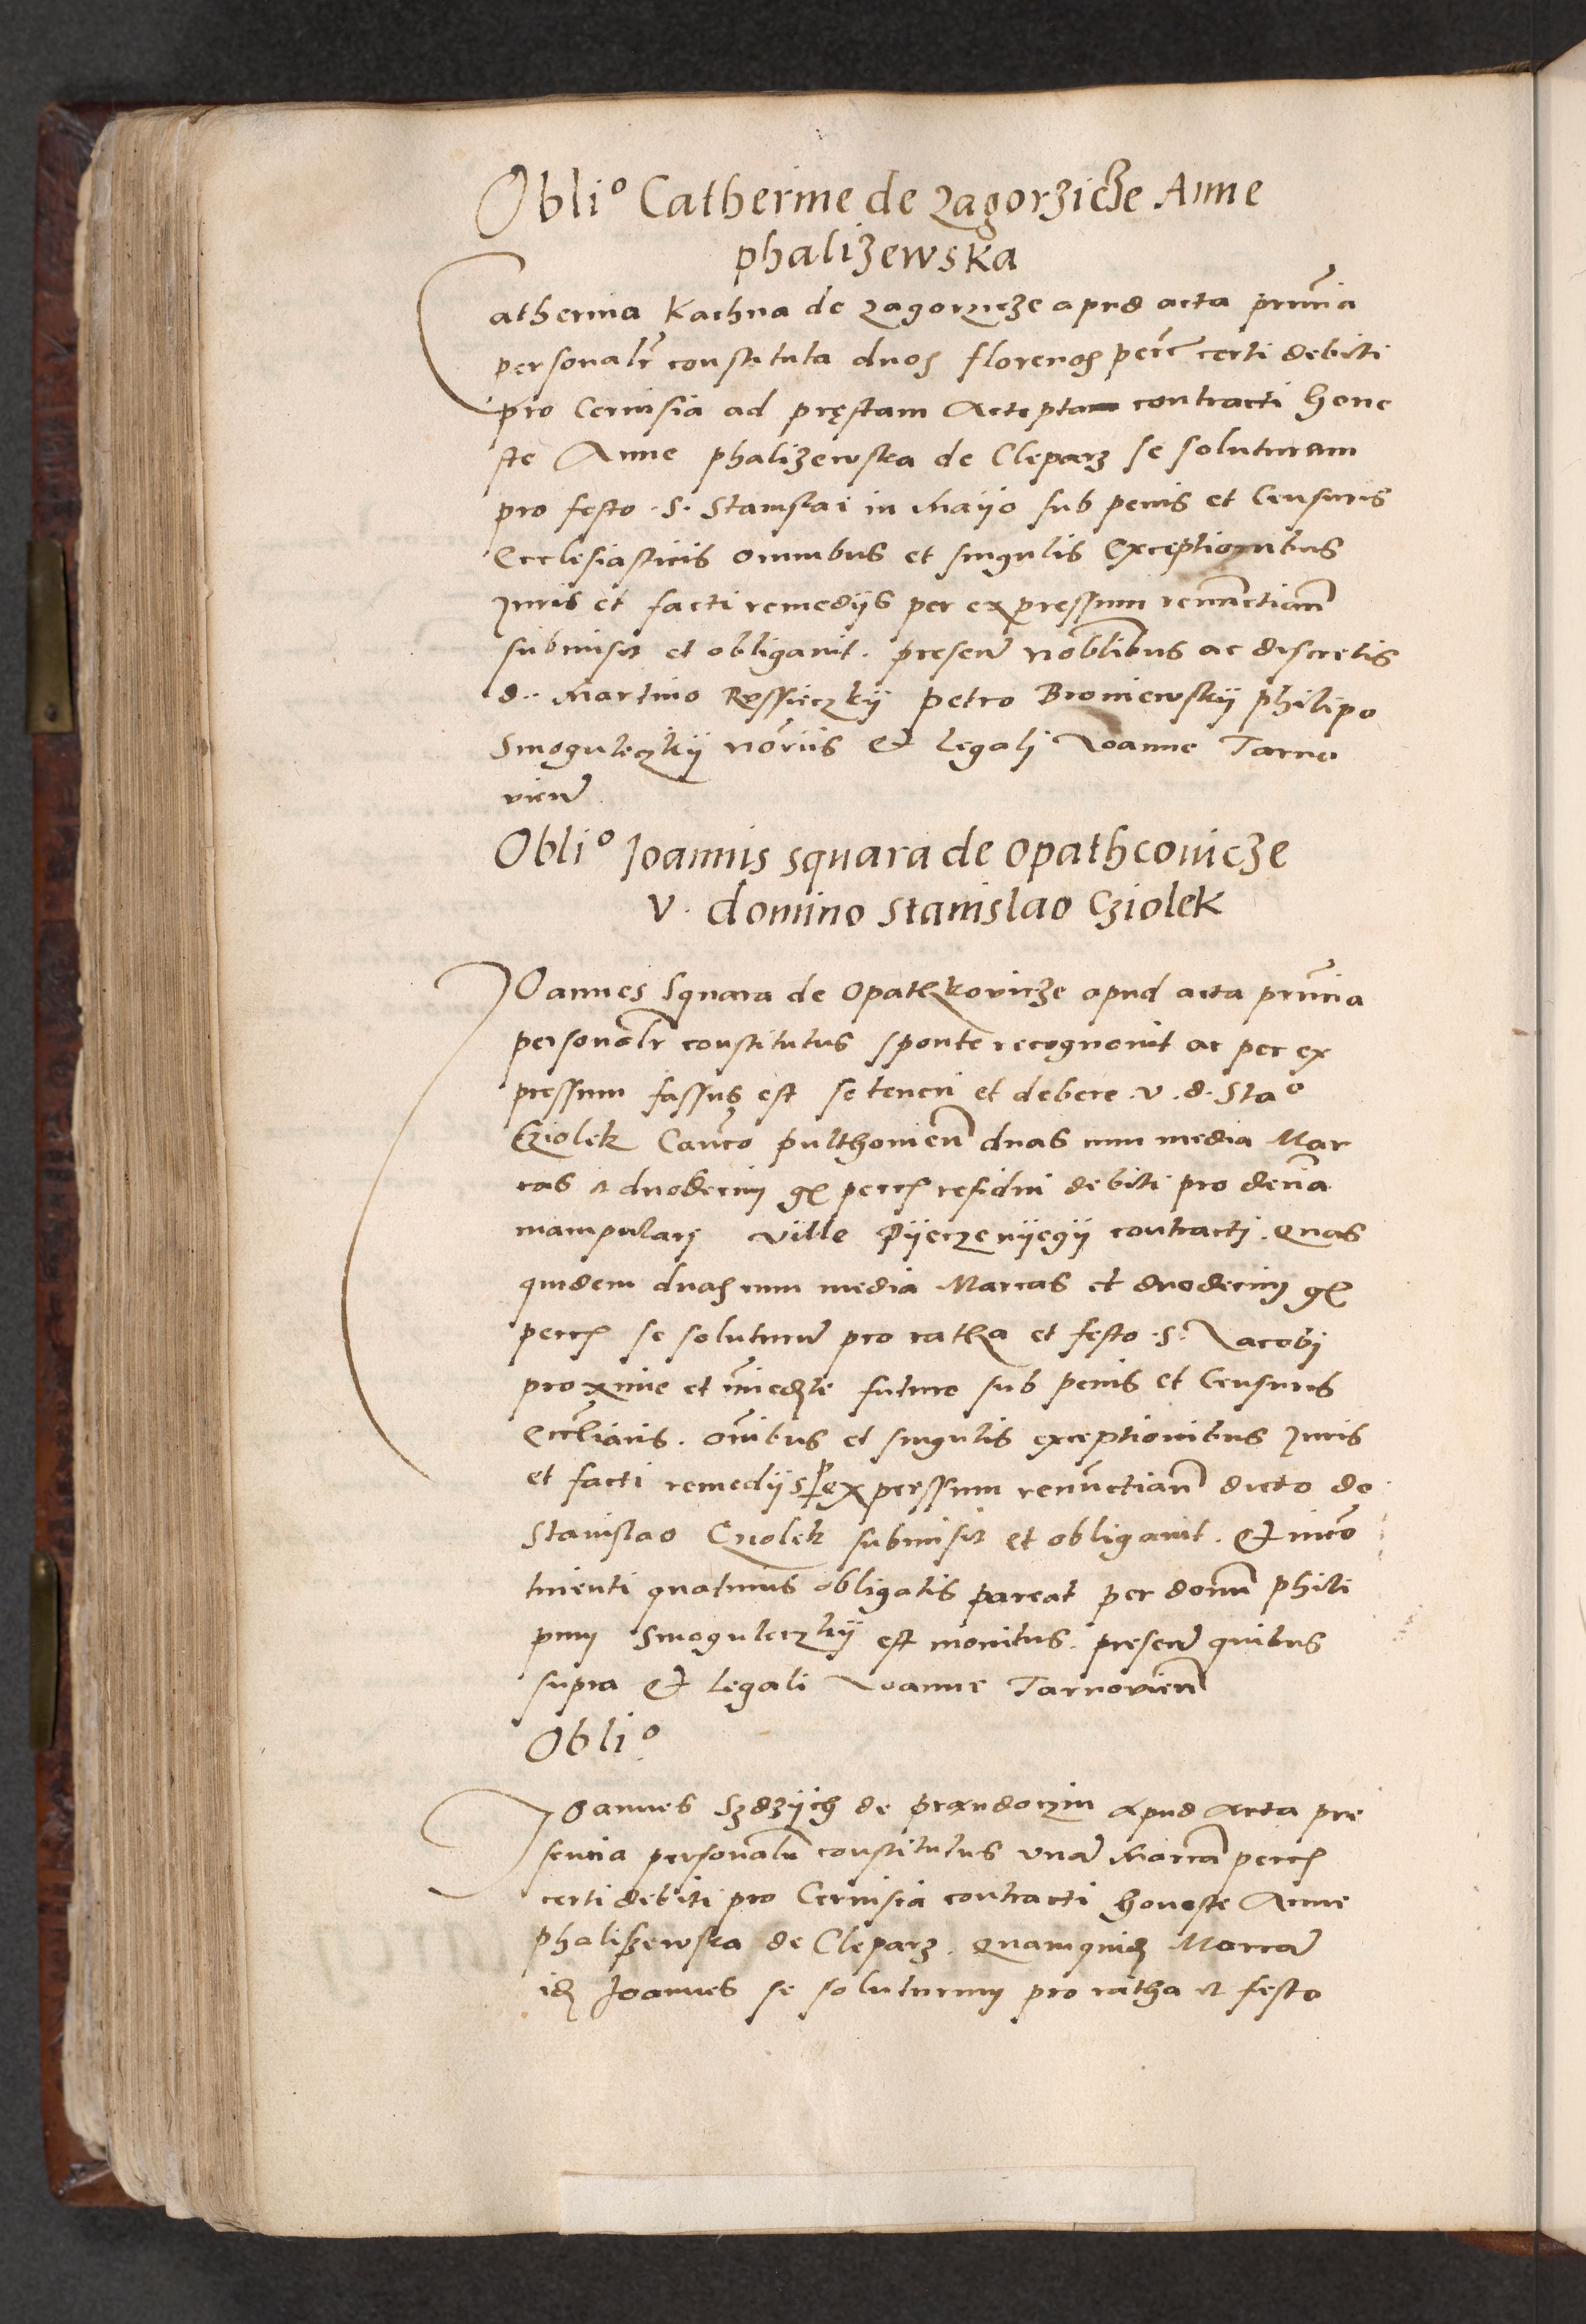 Obli° Catherine de Zagorzicze Anne
phalizewska
Catherina Kachna de Zagorzicze apud acta prn̄cia
personalr̄ constituta duos florenos pecc̄ certi debiti
pro Ceruisia ad pręstam Acceptam contracti hone
ste Anne phalizewska de Cleparz se soluturam
pro festo S. Stanislai in Maijo sub penis et Censuris
Ecclesiasticis omnibus et singulis Exceptionibus
Juris et facti remedijs per expressum renunctian̄
submisit et obligauit. presen̄ noblibus ac discretis
d. Martino Rossieczkij petro Broniewskij philipo
Smoguleczkij nōrijs et legalj Joanne Tarno
vien̄
Obli° Joannis squara de opathcouicze
v. domino stanislao Cziolek
JOannes Squara de Opathkovicze apud acta prn̄cia
personalr̄ constitutus sponte recognouit ac per ex
pressum fassus est se teneri et debere v. d. Sta°
Cziolek Can̄co pulthouien̄ duas cum media Mar
cas et duodecim gr̄ pecc̄ residui debiti pro decīa
manipularj ville Pijeczenijegij contractj. Quas
quidem duas cum media Marcas et duodecim gr̄
pecc̄ se soluturū pro ratha et festo S. Jacobj
proxime et īmedᵗe futuro sub penis et Censuris
Eccl̄iacis. om̄ibus et singulis exceptionibus Juris
et facti remedijs p expressum renūctian̄ dicto do
Stanislao Cziolek submisit et obligauit. Et incō
tinenti quatinus obligatis pareat per donū phili
pum Smoguleczkij est monitus. presen̄ quibus
supra et legali Joanne Tarnovien̄
Obli°
Joannes Szdzijch de prandoczin Apud Acta pre
sencia personalr̄ constitutus vnā Marcā pecc̄
certi debiti pro Ceruisia contracti honeste Anne
phalizewska de Cleparz. Quamquid Marcā
id Joannes se soluturum pro ratha et festo